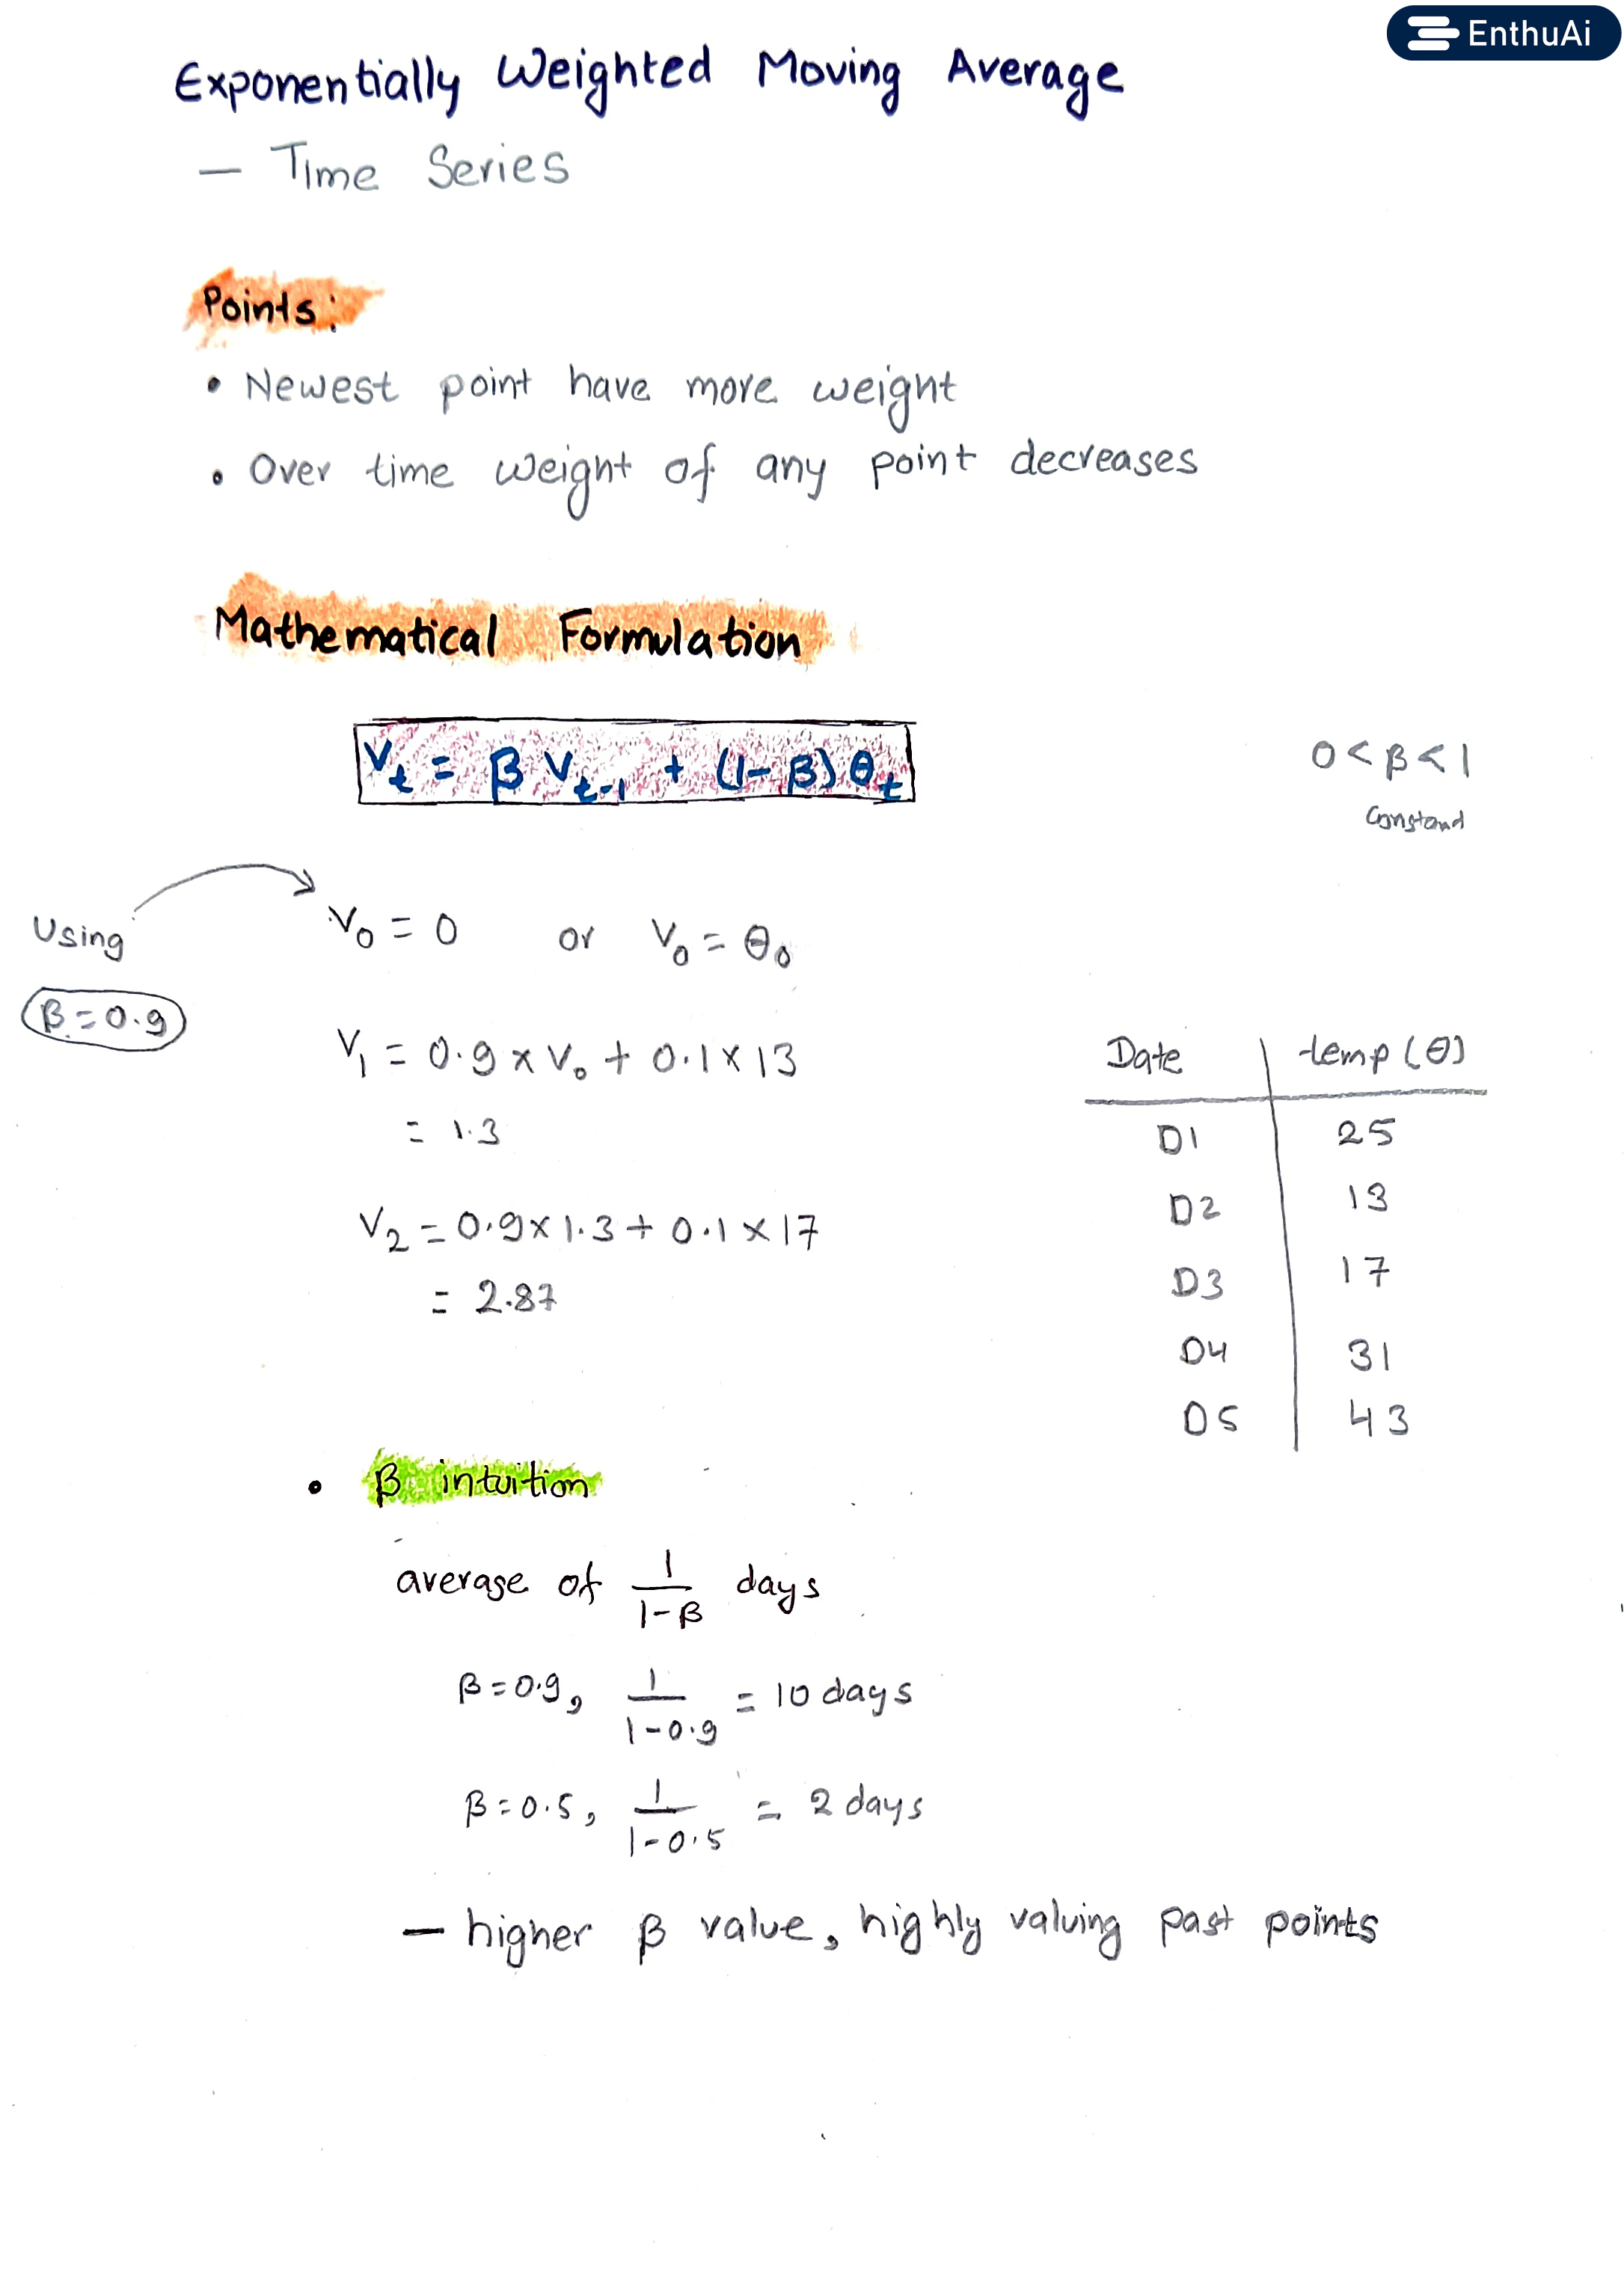 EnthuAi
Exponentially Weighted Moving Average
— Time Series
Points:
• Newest point have more weight
• Over time weight of any point decreases
Mathematical Formulation
V_t = β V_t-1 + (1-β) θ_t
0 < β < 1
Using
β = 0.9
V_0 = 0 or V_0 = θ_0
V_1 = 0.9 × V_0 + 0.1 × 13
= 1.3
V_2 = 0.9 × 1.3 + 0.1 × 17
= 2.87
Date temp (θ)
D1 25
D2 13
D3 17
D4 31
D5 43
• β intuition
average of 1/(1-β) days
β = 0.9, 1/(1-0.9) = 10 days
β = 0.5, 1/(1-0.5) = 2 days
— higher β value, highly valuing past points